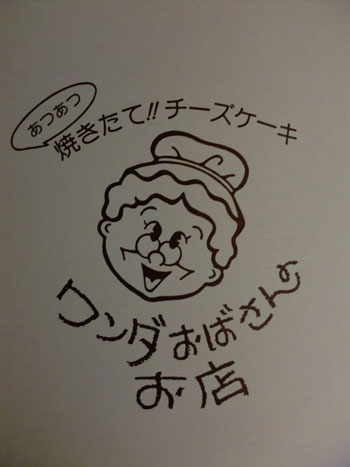 あつあつ
焼きたて!!チーズケーキ
ワンダおばさんの
お店